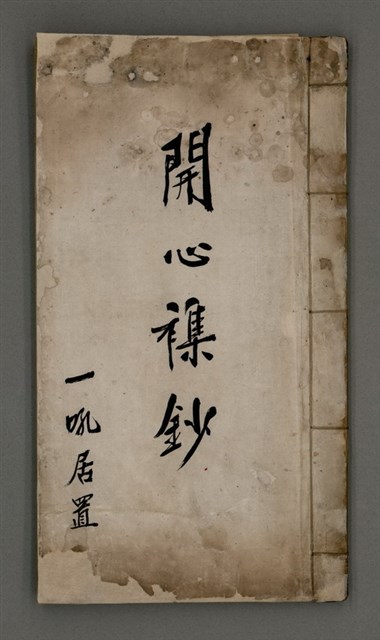 開心襍鈔
一吼居置